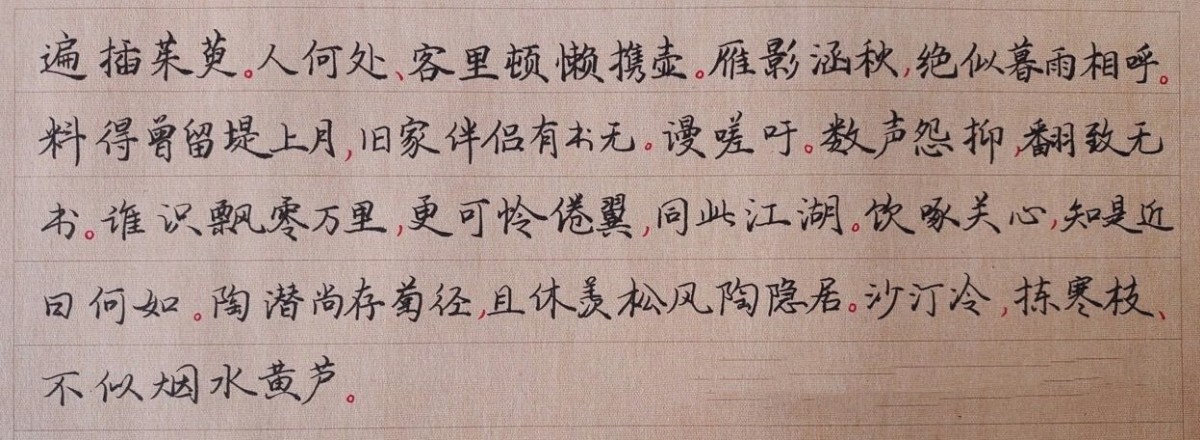 遍插茱萸。人何处、客里顿懒携壶。雁影涵秋,绝似暮雨相呼。
料得曾留堤上月,旧家伴侣有书无。谩嗟吁。数声怨抑,翻致无
书。谁识飘零万里,更可怜倦翼,同此江湖。饮啄关心,知是近
日何如。陶潜尚存菊径,且休羡松风陶隐居。沙汀冷,拣寒枝、
不似烟水黄芦。